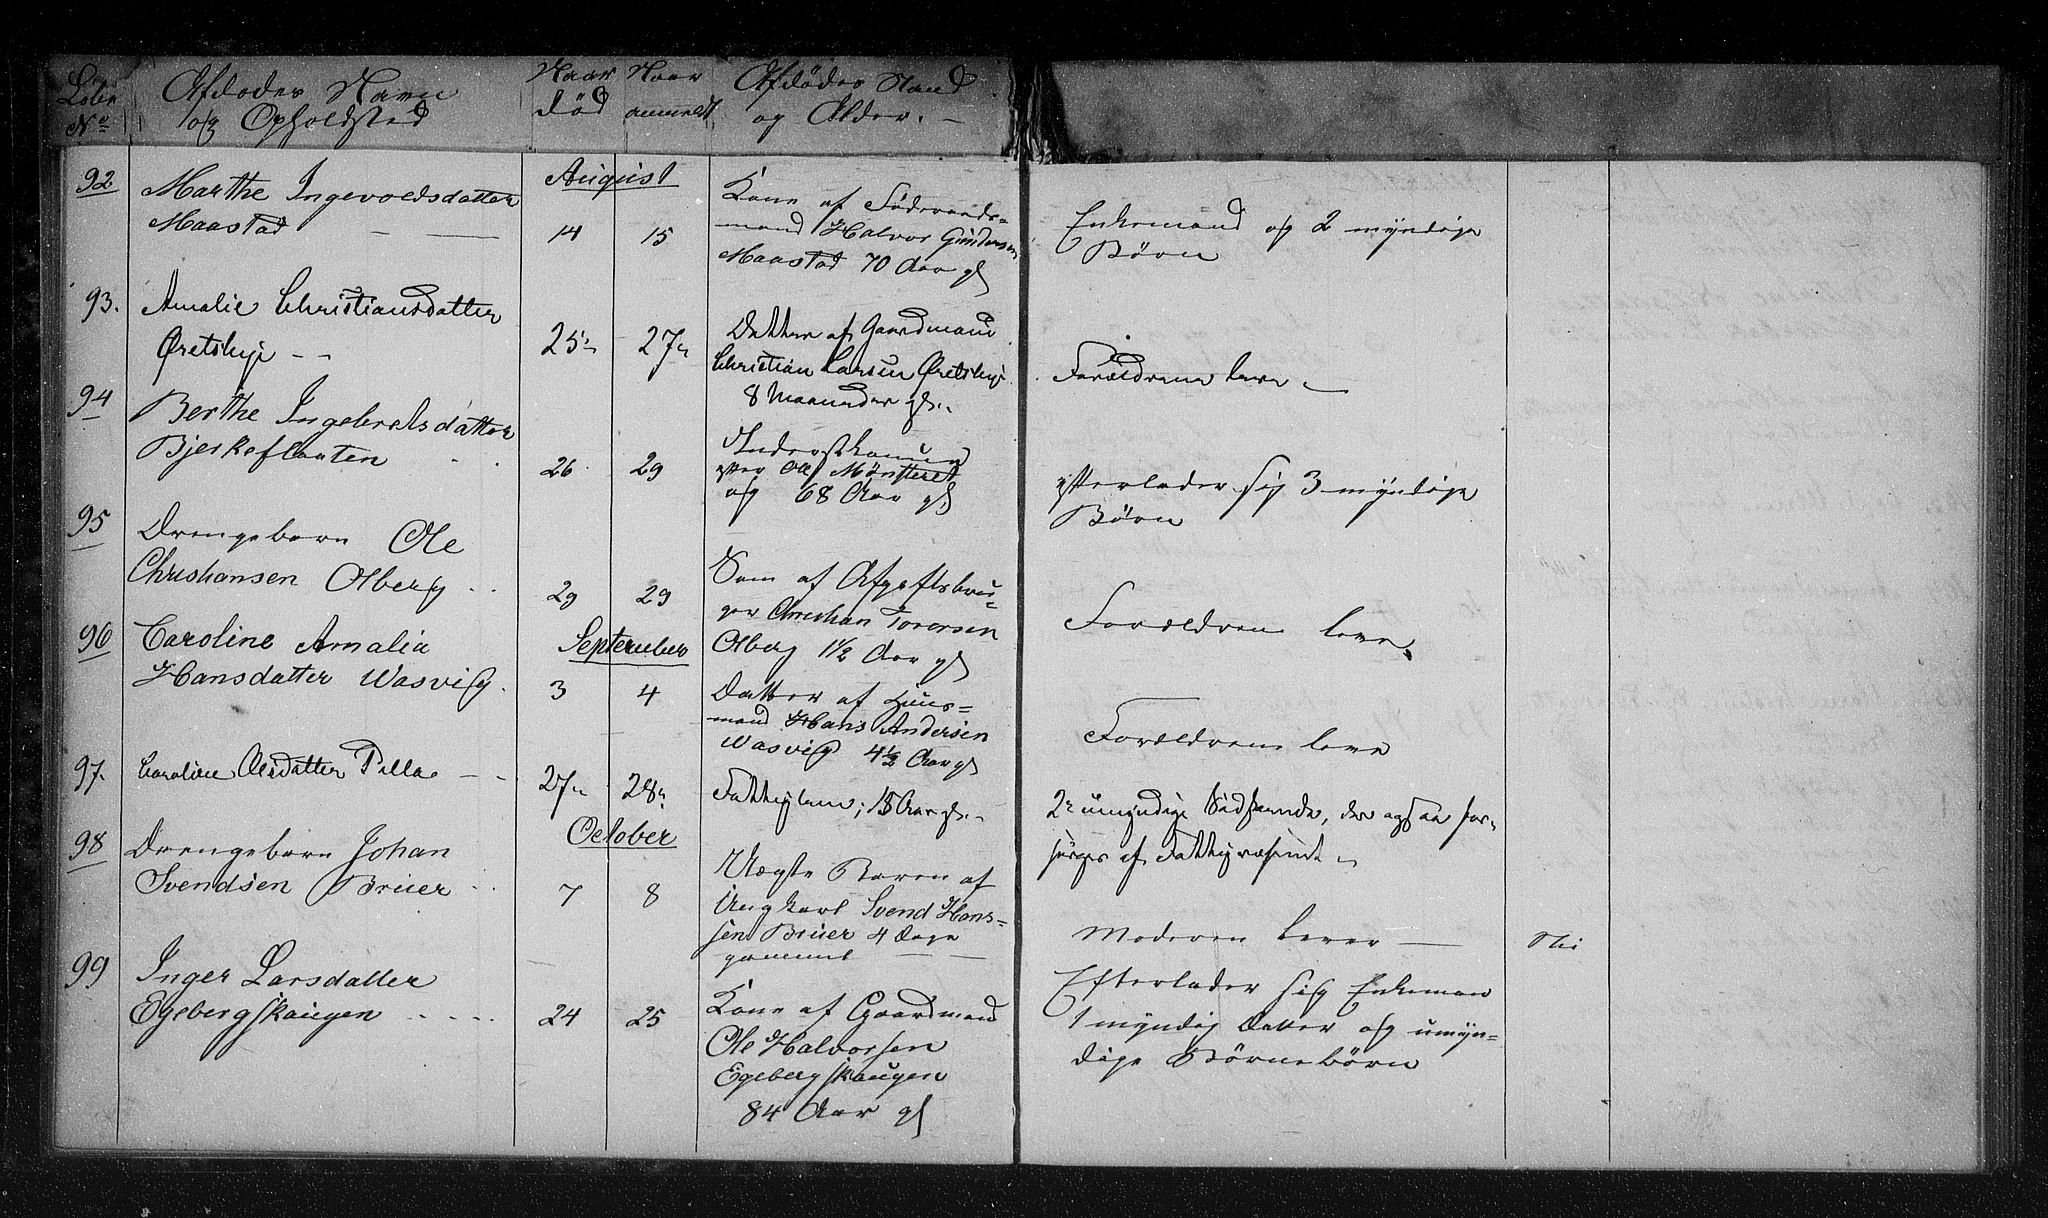 Løbe No
Afdødes Navn og Opholdsted
Naar død
Naar anmeldt
Afdødes Stand og Alder. –
92
Marthe Ingevoldsdatter
Maastad
August
14
15
Kone af Føderaads-
mand Halvor Gundersen
Maastad 70 Aar gl
Enkemand og 2 myndige
Børn
93.
Amalie Christiansdatter
Øretshje
25
27
Datter af Gaardmand
Christian Larsen Øretshje
8 Maaneder gl.
Forældrene leve
94
Berthe Ingebretsdatter
Bjerkeflaaten
26
29
efter Ole Mønsteret
og 68 Aar gl
efterlader sig 3 myndige
Børn
95
Drengebarn Ole
Christiansen Olberg
29
29
Søn af Afgiftsbru-
ger Christian Torersen
Olberg 1½ Aar gl
Forældrene leve
96
Caroline Amalia
Hansdatter Wasvig
September
3
4
Datter af Huus-
mand Hans Andersen
Wasvig 4½ Aar gl
Forældrene leve
97.
Caroline Olsdatter Pilla
27
28
Fattiglem, 18 Aar gl.
2 umyndige Sødskende, der ogsaa for-
sørges af Fattigvæsenet
98
Drengebarn Johan
Svendsen Bruer
October
7
8
Uægte Barn af
Ungkarl Svend Hans-
sen Bruer 4 Dage
gammel
Moderen lever
Nei
99
Inger Larsdatter
Egebergskaugen
24
25
Kone af Gaardmand
Ole Halvorsen
Egebergskaugen
84 Aar gl
Efterlader sig Enkeman
1 myndig Datter og umyn-
dige Børnebørn